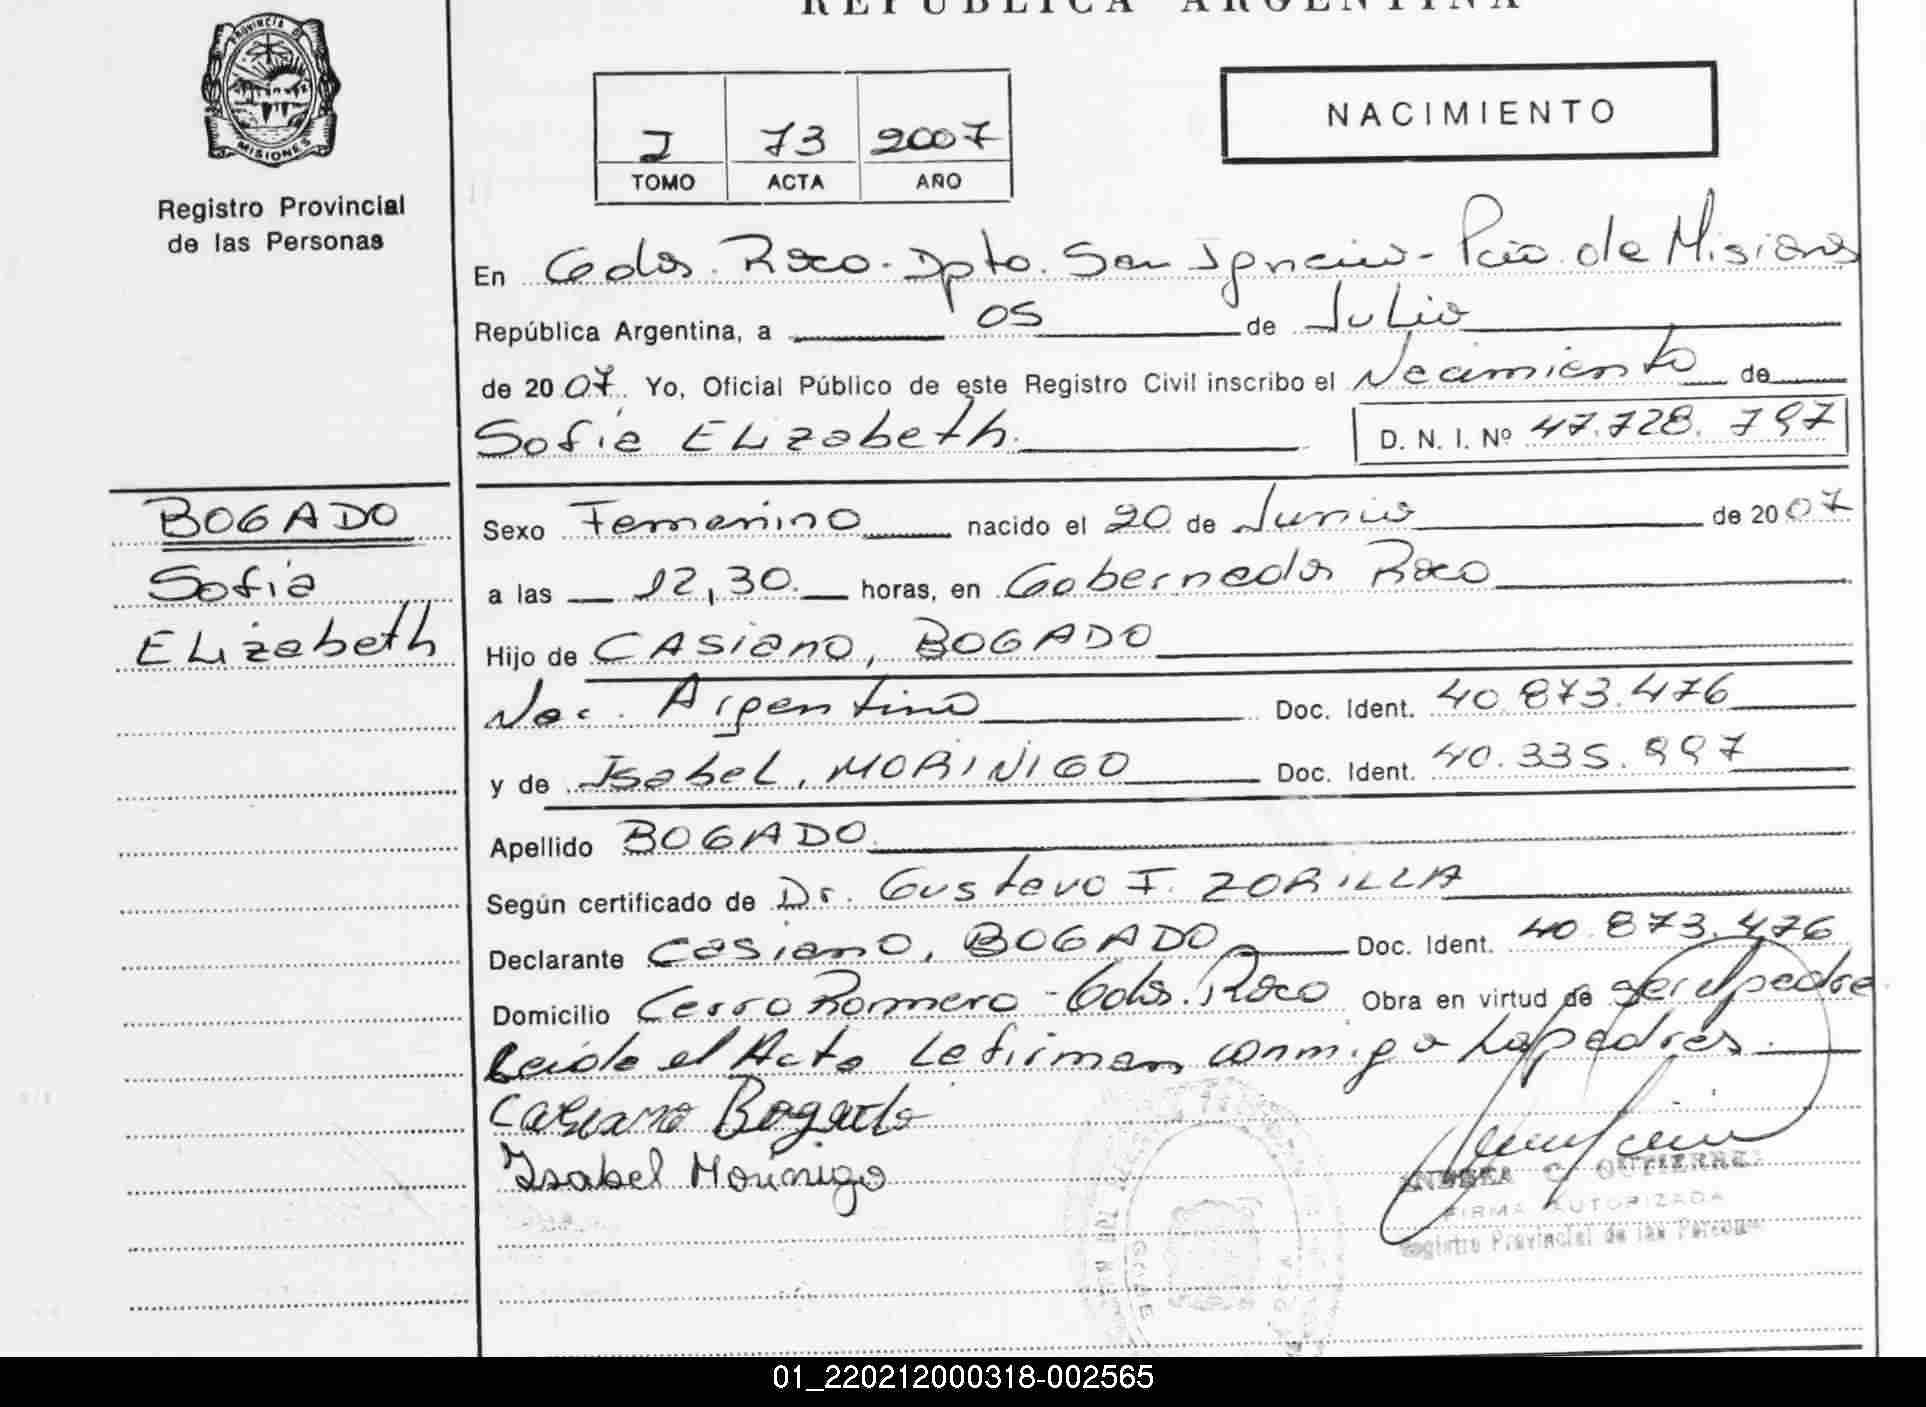 REPUBLICA ARGENTINA
PROVINCIA DE
MISIONES
Registro Provincial
de las Personas
I 73 2007
TOMO ACTA AÑO
NACIMIENTO
En Gdor. Roca - Dpto. San Ignacio - Pcia. de Misiones
República Argentina, a 05 de Julio
de 2007. Yo, Oficial Público de este Registro Civil inscribo el Nacimiento de
Sofia ELizabeth. D. N. I. Nº 47.728.797
BOGADO
Sofia
ELizabeth
Sexo Femenino nacido el 20 de Junio de 2007
a las 12,30. horas, en Gobernador Roca
Hijo de CASiano, BOGADO
Nac. Argentino Doc. Ident. 40.873.476
y de IsabeL, MORINIGO Doc. Ident. 40.335.997
Apellido BOGADO.
Según certificado de Dr. Gustavo F. ZORILLA
Declarante Casiano, BOGADO Doc. Ident. 40.873.476
Domicilio Cerro Romero - Gdor. Roca Obra en virtud de ser el padre
Leida el Acta La firman conmigo Los padres.
Casiano Bogado
Isabel Morinigo
C. GUTIERREZ
FIRMA AUTORIZADA
Registro Provincial de las Personas
01_220212000318-002565